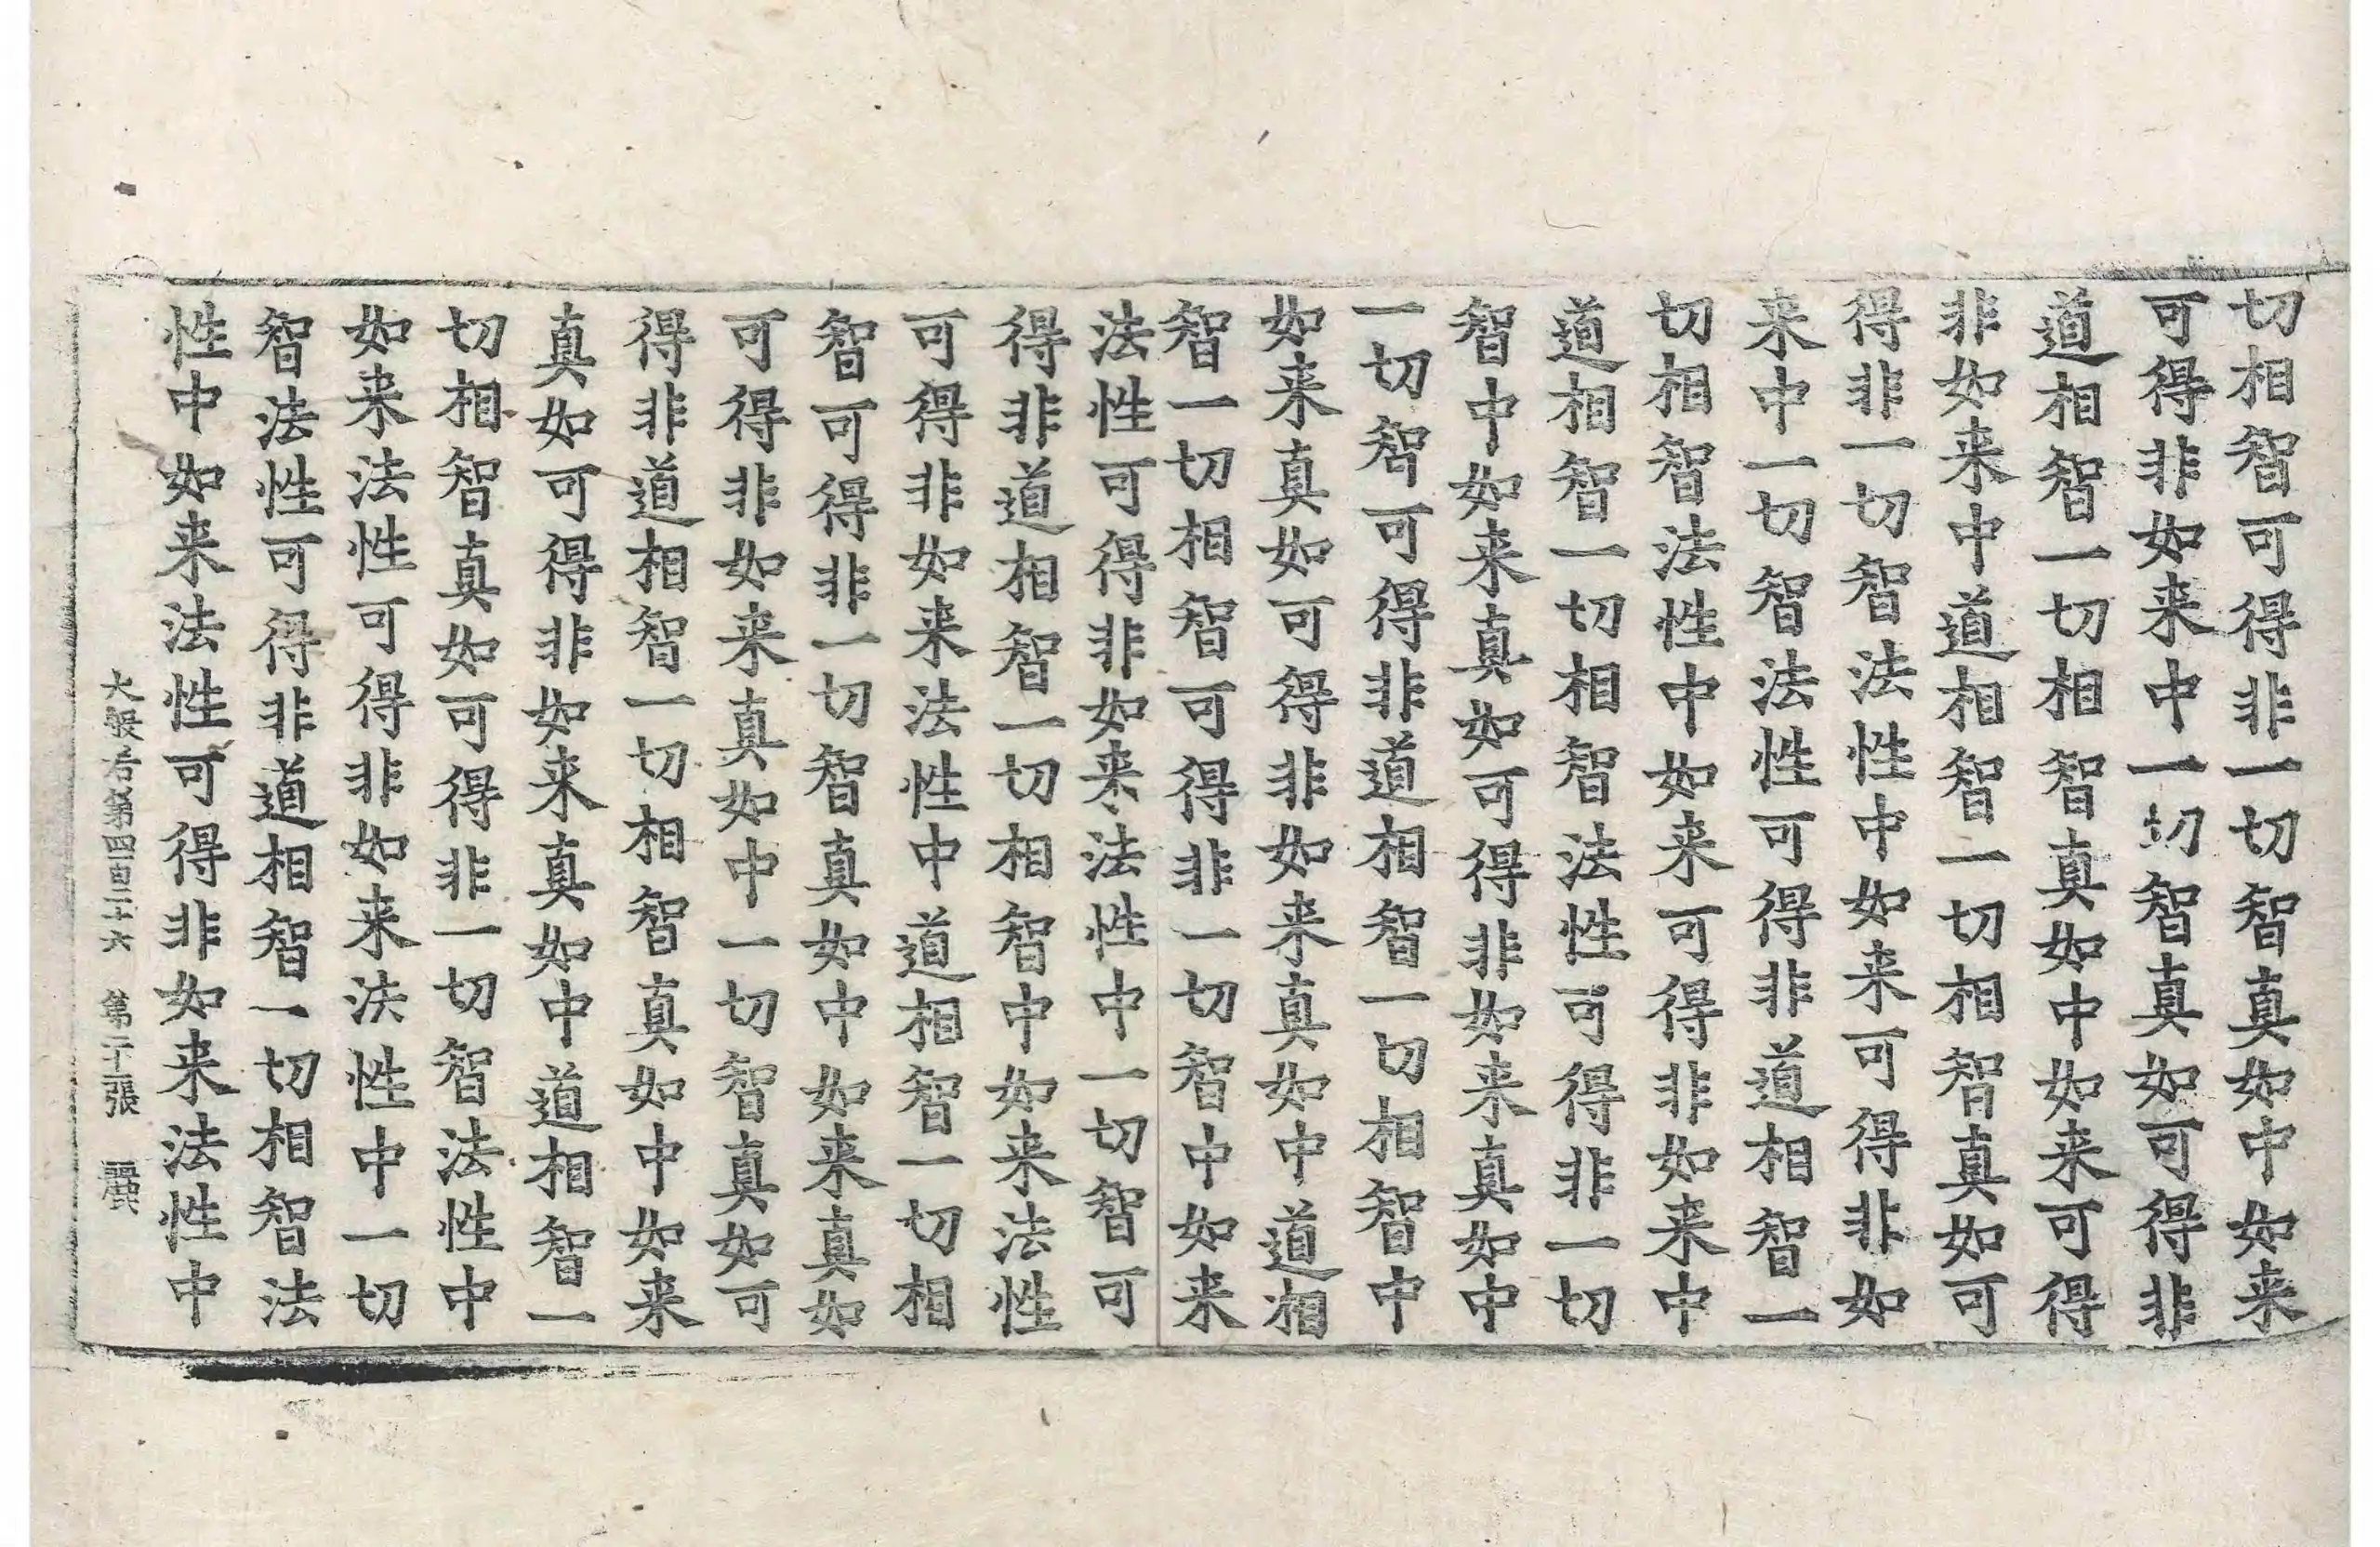 切相智可得非一切智真如中如来
可得非如来中一切智真如可得非
道相智一切相智真如中如来可得
非如来中道相智一切相智真如可
得非一切智法性中如来可得非如
来中一切智法性可得非道相智一
切相智法性中如来可得非如来中
道相智一切相智法性可得非一切
智中如来真如可得非如来真如中
一切智可得非道相智一切相智中
如来真如可得非如来真如中道相
智一切相智可得非一切智中如来
法性可得非如来法性中一切智可
得非道相智一切相智中如来法性
可得非如来法性中道相智一切相
智可得非一切智真如中如来真如
可得非如来真如中一切智真如可
得非道相智一切相智真如中如来
真如可得非如来真如中道相智一
切相智真如可得非一切智法性中
如来法性可得非如来法性中一切
智法性可得非道相智一切相智法
性中如来法性可得非如来法性中
大般若第四百二十六 第 張